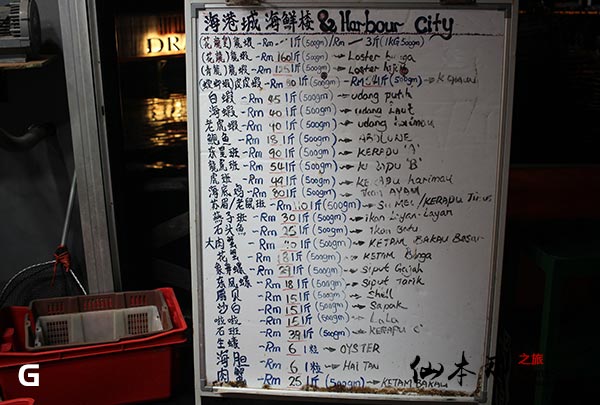 海港城 海鮮楼 & Harbour City
龍蝦 -Rm 1斤(500gm)/Rm 3斤(1KG500gm)
(花龍)龍蝦 -Rm 160 1斤(500gm) Loster
(青龍)龍蝦 -Rm 125 1斤(500gm) Loster
皮皮蝦 -Rm 1斤(500gm) -Rm 1斤(500gm)
白蝦 -Rm 45 1斤(500gm) udang putih
海蝦 -Rm 40 1斤(500gm) udang laut
老虎蝦 -Rm 40 1斤(500gm) udang
鮑魚 -Rm 18 1斤(500gm)
东星斑 -Rm 90 1斤(500gm) KERAPU "A"
龍虎斑 -Rm 54 1斤(500gm) "B"
虎斑 -Rm 49 1斤(500gm) harimau
海底鸡 -Rm 30 1斤(500gm) AYAM
苏眉/老鼠斑 -Rm 110 1斤(500gm) /KERAPU Tikus
燕子斑 -Rm 30 1斤(500gm) ikan Layan-Layan
石头魚 -Rm 25 1斤(500gm) Ikan Batu
大肉蟹 -Rm 1斤(500gm) KETAM BAKAU Besar
花蟹 -Rm 1斤(500gm) KETAM Bunga
象拔螺 -Rm 1斤(500gm) Siput Gajah
东风螺 -Rm 18 1斤(500gm) Siput Tarik
扇贝 -Rm 15 1斤(500gm) Shell
沙白 -Rm 15 1斤(500gm) Sapak
啦啦 -Rm 15 1斤(500gm) LaLa
石斑 -Rm 39 1斤(500gm) KERAPU C
生蠔 -Rm 6 1粒 OYSTER
海胆 -Rm 6 1粒 HAITAN
肉蟹 -Rm 25 1斤(500gm) KETAM BAKAU
DRA
仙本
之旅
G